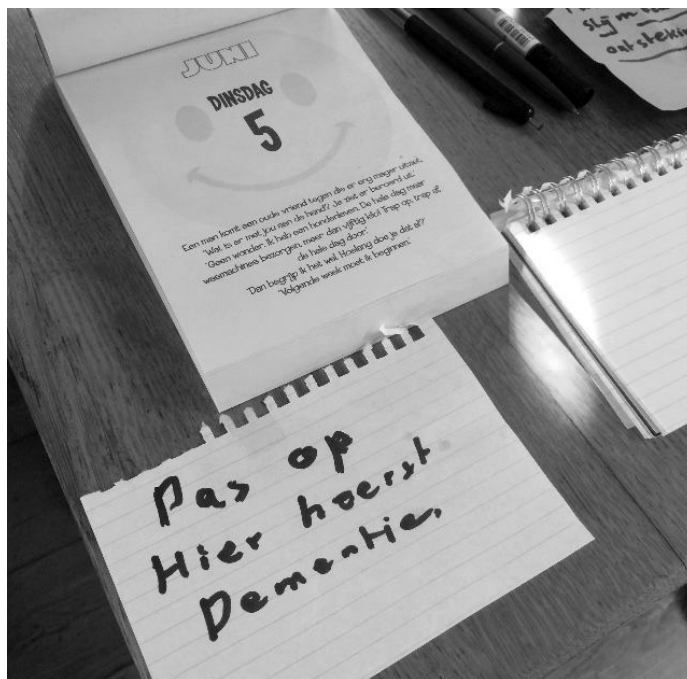 JUNI
DINSDAG
5
Een man komt een oude vriend tegen die er erg mager uitziet.
'Wat is er met jou aan de hand? Je ziet er beroerd uit.'
'Geen wonder. Ik heb een hondenleven. De hele dag maar
wasmachines bezorgen, meer dan vijftig kilo! Trap op, trap af,
de hele dag door.'
'Dan begrijp ik het wel. Hoelang doe je dat al?'
'Volgende week moet ik beginnen.'
Pas op
Hier heerst
Dementie.
slijm
ontsteking